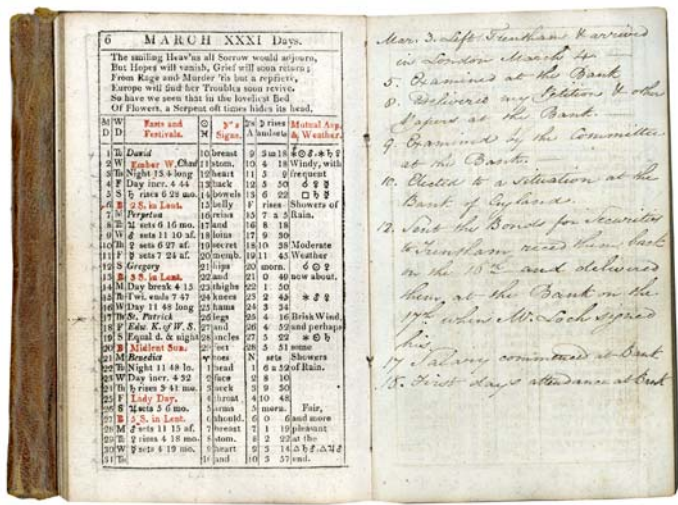 6 MARCH XXXI Days.
The smiling Heav'ns all Sorrow would adjourn,
But Hopes will vanish, Grief will soon return;
From Rage and Murder 'tis but a reprieve,
Europe will find her Troubles soon revive.
So have we seen that in the loveliest Bed
Of Flowers, a Serpent oft times hides its head.
M W Fasts and ☉ ☽'s ☽'s ☽ rises Mutual Asp.
D D Festivals. ♓ Signs. A and sets & Weather.
1 Tu David 10 breast 9 3m18
2 W Ember W. 11 stom. 10 4 18 Windy, with
3 Th Night 13 4 long 12 heart 11 5 9 frequent
4 F Day incr. 4 44 13 back 12 5 50
5 S ♄ rises 6 28 mo. 14 bowels 13 6 22
6 B 2 S. in Lent. 15 belly F rises Showers of
7 M Perpetua 16 reins 15 7 a 5 Rain.
8 Tu sets 6 16 mo. 17 and 16 8 18
9 W sets 11 10 af. 18 loins 17 9 30
10 Th sets 6 27 af. 19 secret 18 10 38 Moderate
11 F sets 7 24 af. 20 memb. 19 11 45 Weather
12 S Gregory 21 hips 20 morn.
13 B 3 S. in Lent. 22 and 21 0 49 now about.
14 M Day break 4 15 23 thighs 22 1 50
15 Tu Twi. ends 7 47 24 knees 23 2 45
16 W Day 11 48 long 25 hams 24 3 34
17 Th St. Patrick 26 legs 25 4 16 Brisk Wind,
18 F Edw. K. of W. S. 27 and 26 4 52 and perhaps
19 S Equal d. & night 28 ancles 27 5 22
20 B Midlent Sun. 29 feet 28 5 51 some
21 M Benedict ♈ toes N sets Showers
22 Tu Night 11 48 lo. 1 head 1 6 a 59 of Rain.
23 W Day incr. 4 32 2 face 2 8 10
24 Th ♄ rises 5 41 mo. 3 neck 3 9 30
25 F Lady Day. 4 throat 4 10 48
26 S sets 5 6 mo. 5 arms 5 morn. Fair,
27 B 5 S. in Lent. 6 should. 6 0 6 and more
28 M sets 11 15 af. 7 breast 7 1 19 pleasant
29 Tu rises 4 18 mo. 8 stom. 8 2 22 at the
30 W sets 4 19 mo. 9 heart 9 3 14
31 Th and 10 3 57 end.
Mar. 3. Left Trentham & arrived
in London March 4 —
5. Examined at the Bank
8. Delivered my Petitions & other
Papers at the Bank.
9. Examined by the Committee
at the Bank. —
10. Elected to a situation at the
Bank of England.
12. Sent the Bonds for Securities
to Trentham, recd them back
on the 16th and delivered
them at the Bank on the
17th when Mr. Loch signed
his.
17 Salary commenced at Bank
18. First days attendance at Bank